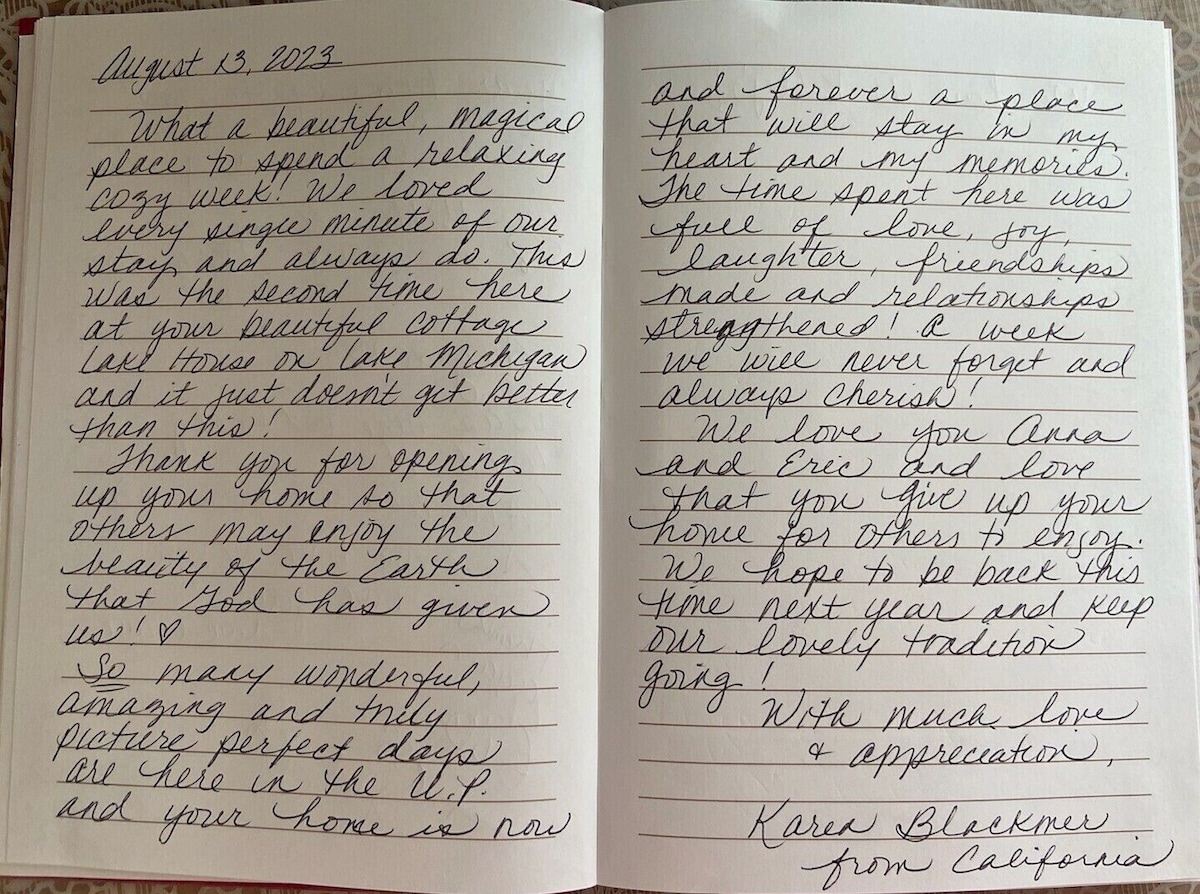 August 13, 2023
What a beautiful, magical
place to spend a relaxing
cozy week! We loved
every single minute of our
stay and always do. This
was the second time here
at your beautiful cottage
Lake House on Lake Michigan
and it just doesn't get better
than this!
Thank you for opening
up your home so that
others may enjoy the
beauty of the Earth
that God has given
us! ♡
So many wonderful,
amazing and truly
picture perfect days
are here in the U.P.
and your home is now
and forever a place
that will stay in my
heart and my memories.
The time spent here was
full of love, joy,
laughter, friendships
made and relationships
strengthened! A week
we will never forget and
always cherish!
We love you Anna
and Eric and love
that you give up your
home for others to enjoy.
We hope to be back this
time next year and keep
our lovely tradition
going!
With much love
& appreciation,
Karen Blackmer
from California